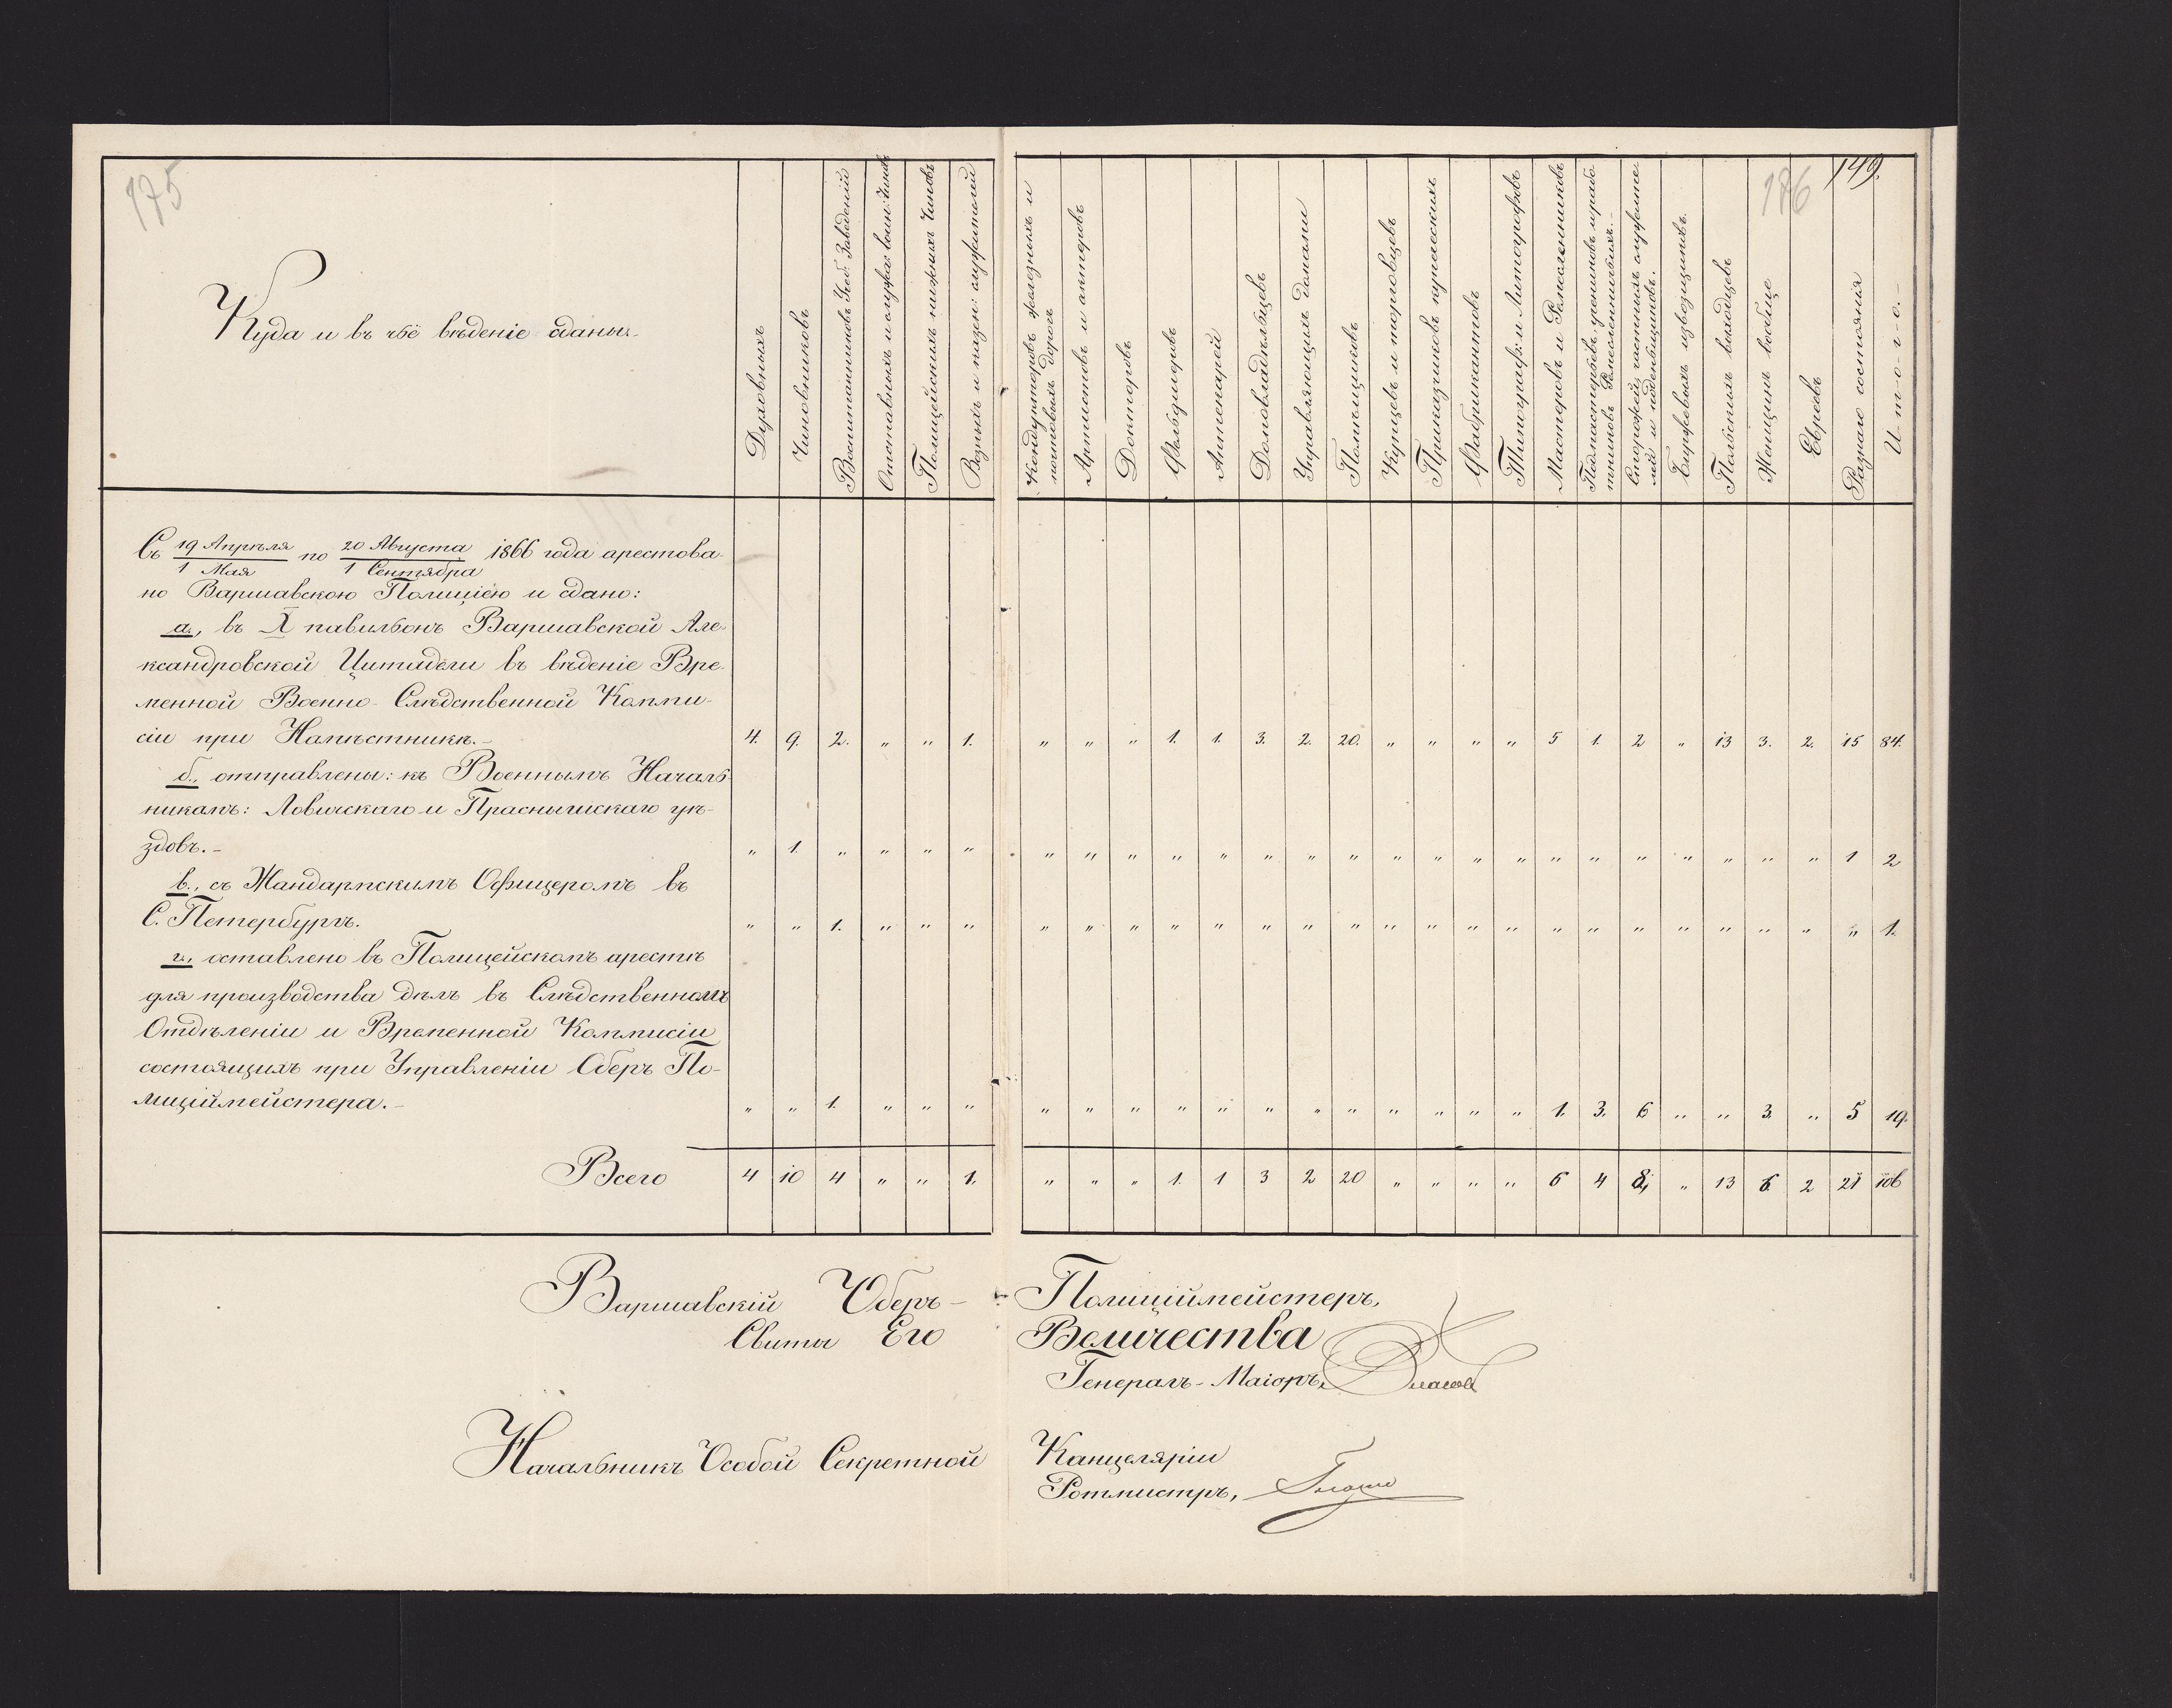 175
176
149.
Куда и въ чьё вѣденіе сданы.
Духовныхъ
Чиновниковъ
Воспитанниковъ Учеб: Заведеній
Отставныхъ и служа: воен: чиновъ
Полицейскихъ нижнихъ чиновъ
Возныхъ и казен: служителей
Кондукторовъ желѣзныхъ и
почтовыхъ дорогъ
Артистовъ и актеровъ
Докторовъ
Фельдшеровъ
Аптекарей
Домовладѣльцевъ
Управляющихъ домами
Помѣщиковъ
Купцевъ и торговцевъ
Прикащиковъ купеческихъ
Фабрикантовъ
Типограф: и Литографовъ
Мастеровъ и Ремесленниковъ
Подмастерьевъ, учениковъ и рабо
тниковъ Ремесленничьихъ.
Сторожей, частныхъ служите
лей и поденьщиковъ.
Биржевыхъ извозщиковъ.
Польскихъ выходцевъ
Женщинъ вообще
Евреевъ
Разнаго состоянія
И-т-о-г-о.-
Съ 19 Апрѣля / 1 Мая по 20 Августа / 1 Сентября 1866 года арестова-
но Варшавскою Полиціею и сдано:
а., въ X павильонъ Варшавской Але-
ксандровской Цитадели въ вѣденіе Вре-
менной Военно-Слѣдственной Комми-
сіи при Намѣстникѣ.- 4. 9. 2. „ „ 1. „ „ „ 1. 1. 3. 2. 20. „ „ „ „ 5 1. 2 „ 13 3. 2. 15 84.
б., отправлены: къ Военнымъ Началь-
никамъ: Ловичскаго и Праснышскаго уѣ-
здовъ.- „ 1. „ „ „ „ „ „ „ „ „ „ „ „ „ „ „ „ „ „ „ „ „ „ „ 1 2
в., съ Жандармскимъ Офицеромъ въ
С. Петербургъ. „ „ 1. „ „ „ „ „ „ „ „ „ „ „ „ „ „ „ „ „ „ „ „ „ „ „ 1.
г., оставлено въ Полицейскомъ арестѣ
для производства дѣлъ въ Слѣдственномъ
Отдѣленіи и Временной Коммисіи
состоящихъ при Управленіи Оберъ По-
лиціймейстера.- „ „ 1. „ „ „ „ „ „ „ „ „ „ „ „ „ „ „ 1. 3. 6 „ „ 3. „ 5 19.
Всего 4 10 4 „ „ 1. „ „ „ 1. 1 3 2 20 „ „ „ „ 6 4 8, „ 13 6 2 21 106
Варшавскій Оберъ- Полиціймейстеръ,
Свиты Его Величества
Генералъ-Маіоръ,
Начальникъ Особой Секретной Канцеляріи
Ротмистръ,